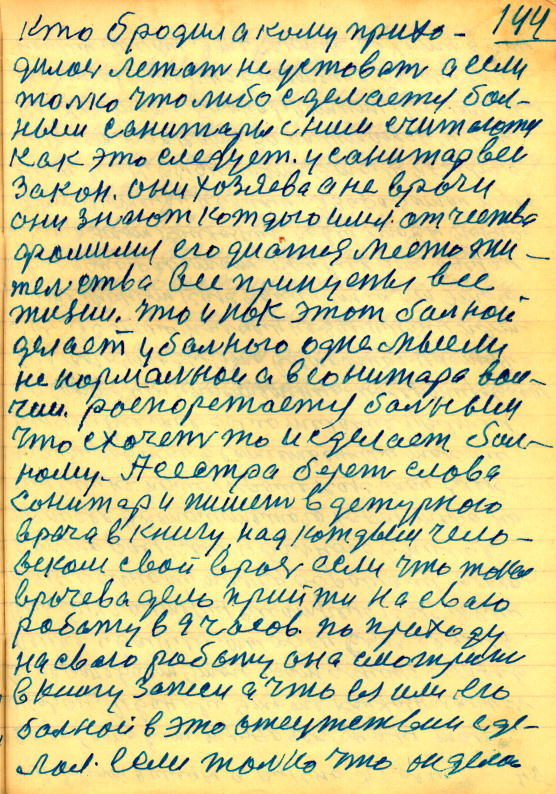 144
Кто бродил а кому прихо-
дилося лежат не устават а если
толко что либо сделается бол-
ным санитары с ним считаются
как это следует. у санитар все
закон. они хозяева а не врачи
они знают каждого имя. отчества
фромилия его диагноя место жи-
телства все прицепы все
жизни. что и как этот балной
делает у балного одне мысли
не нормалной а в санитара вои-
чии. роспоретается балным
что схочет то и сделает бал-
ному. А сестра берет слова
санитар и пишет в дежурного
врача в книгу над каждым чело-
веком свой врач если что толко
врачева дело прийти на сваю
работу в 9 часов. по приходу
на свою работу она смотрит
в книгу записи а что ея или его
балной в это отсутствии сде-
лал. если толко что он дела